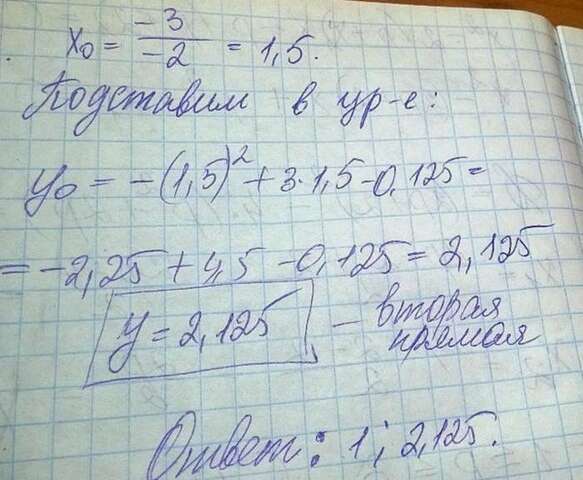 x₀ = -3 / -2 = 1,5.
Подставим в ур-е:
y₀ = -(1,5)² + 3·1,5 - 0,125 =
= -2,25 + 4,5 - 0,125 = 2,125
y = 2,125 — вторая
прямая
Ответ: 1; 2,125.